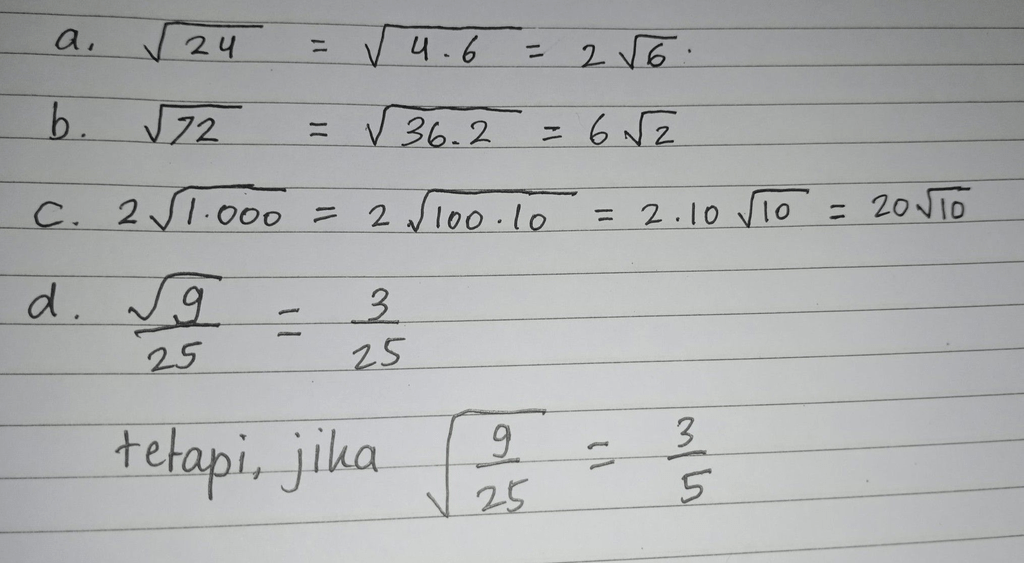 a. √24 = √4.6 = 2√6.
b. √72 = √36.2 = 6√2
c. 2√1.000 = 2√100.10 = 2.10√10 = 20√10
d. √9/25 = 3/25
tetapi, jika √(9/25) = 3/5